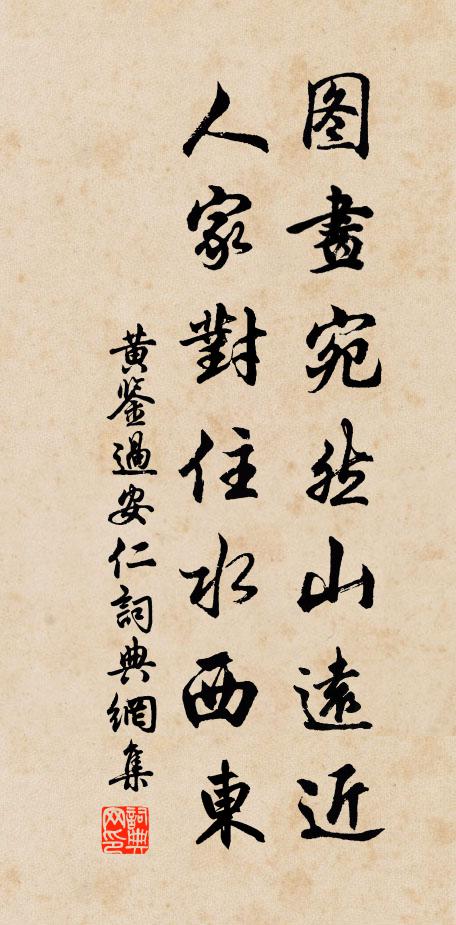 图畫宛然山遠近
人家對住水西東
黄鉴過安仁詞典網集
詞典网印